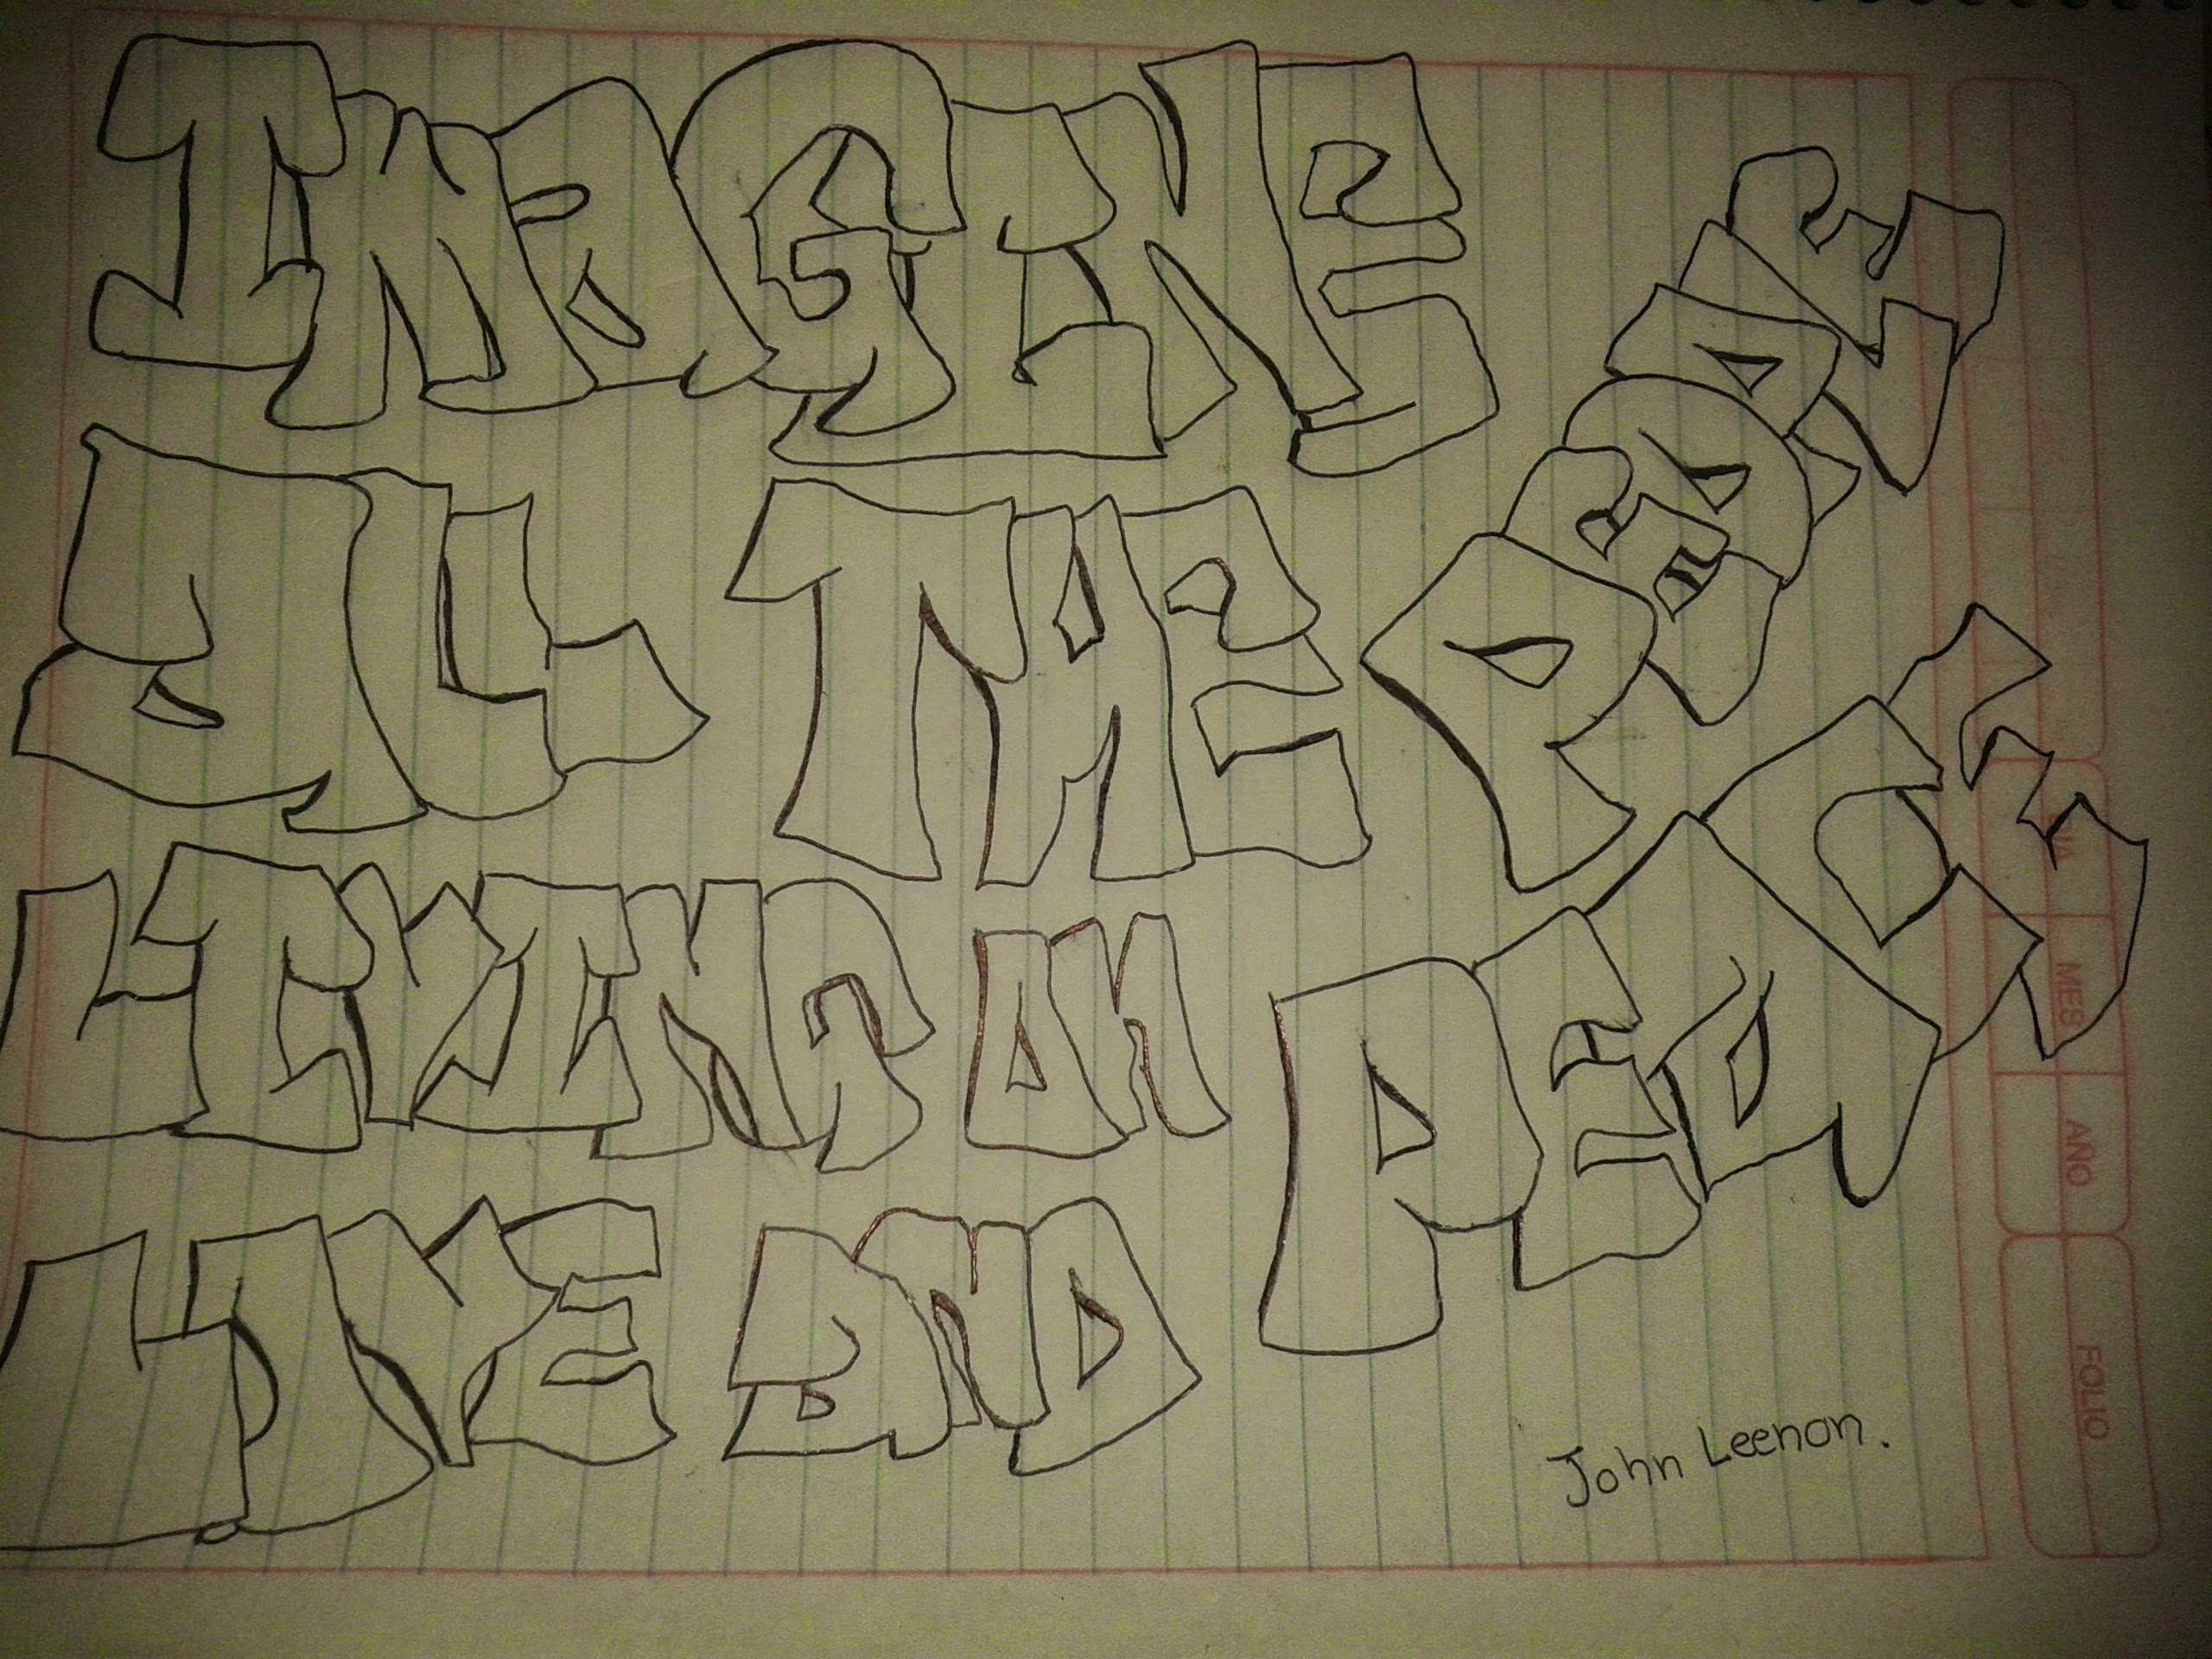 IMaGINE
aLL THE
PEOPLE
LIVING ON
LIVE aND
PEACE
John Leenon.
MES
AÑO
FOLIO